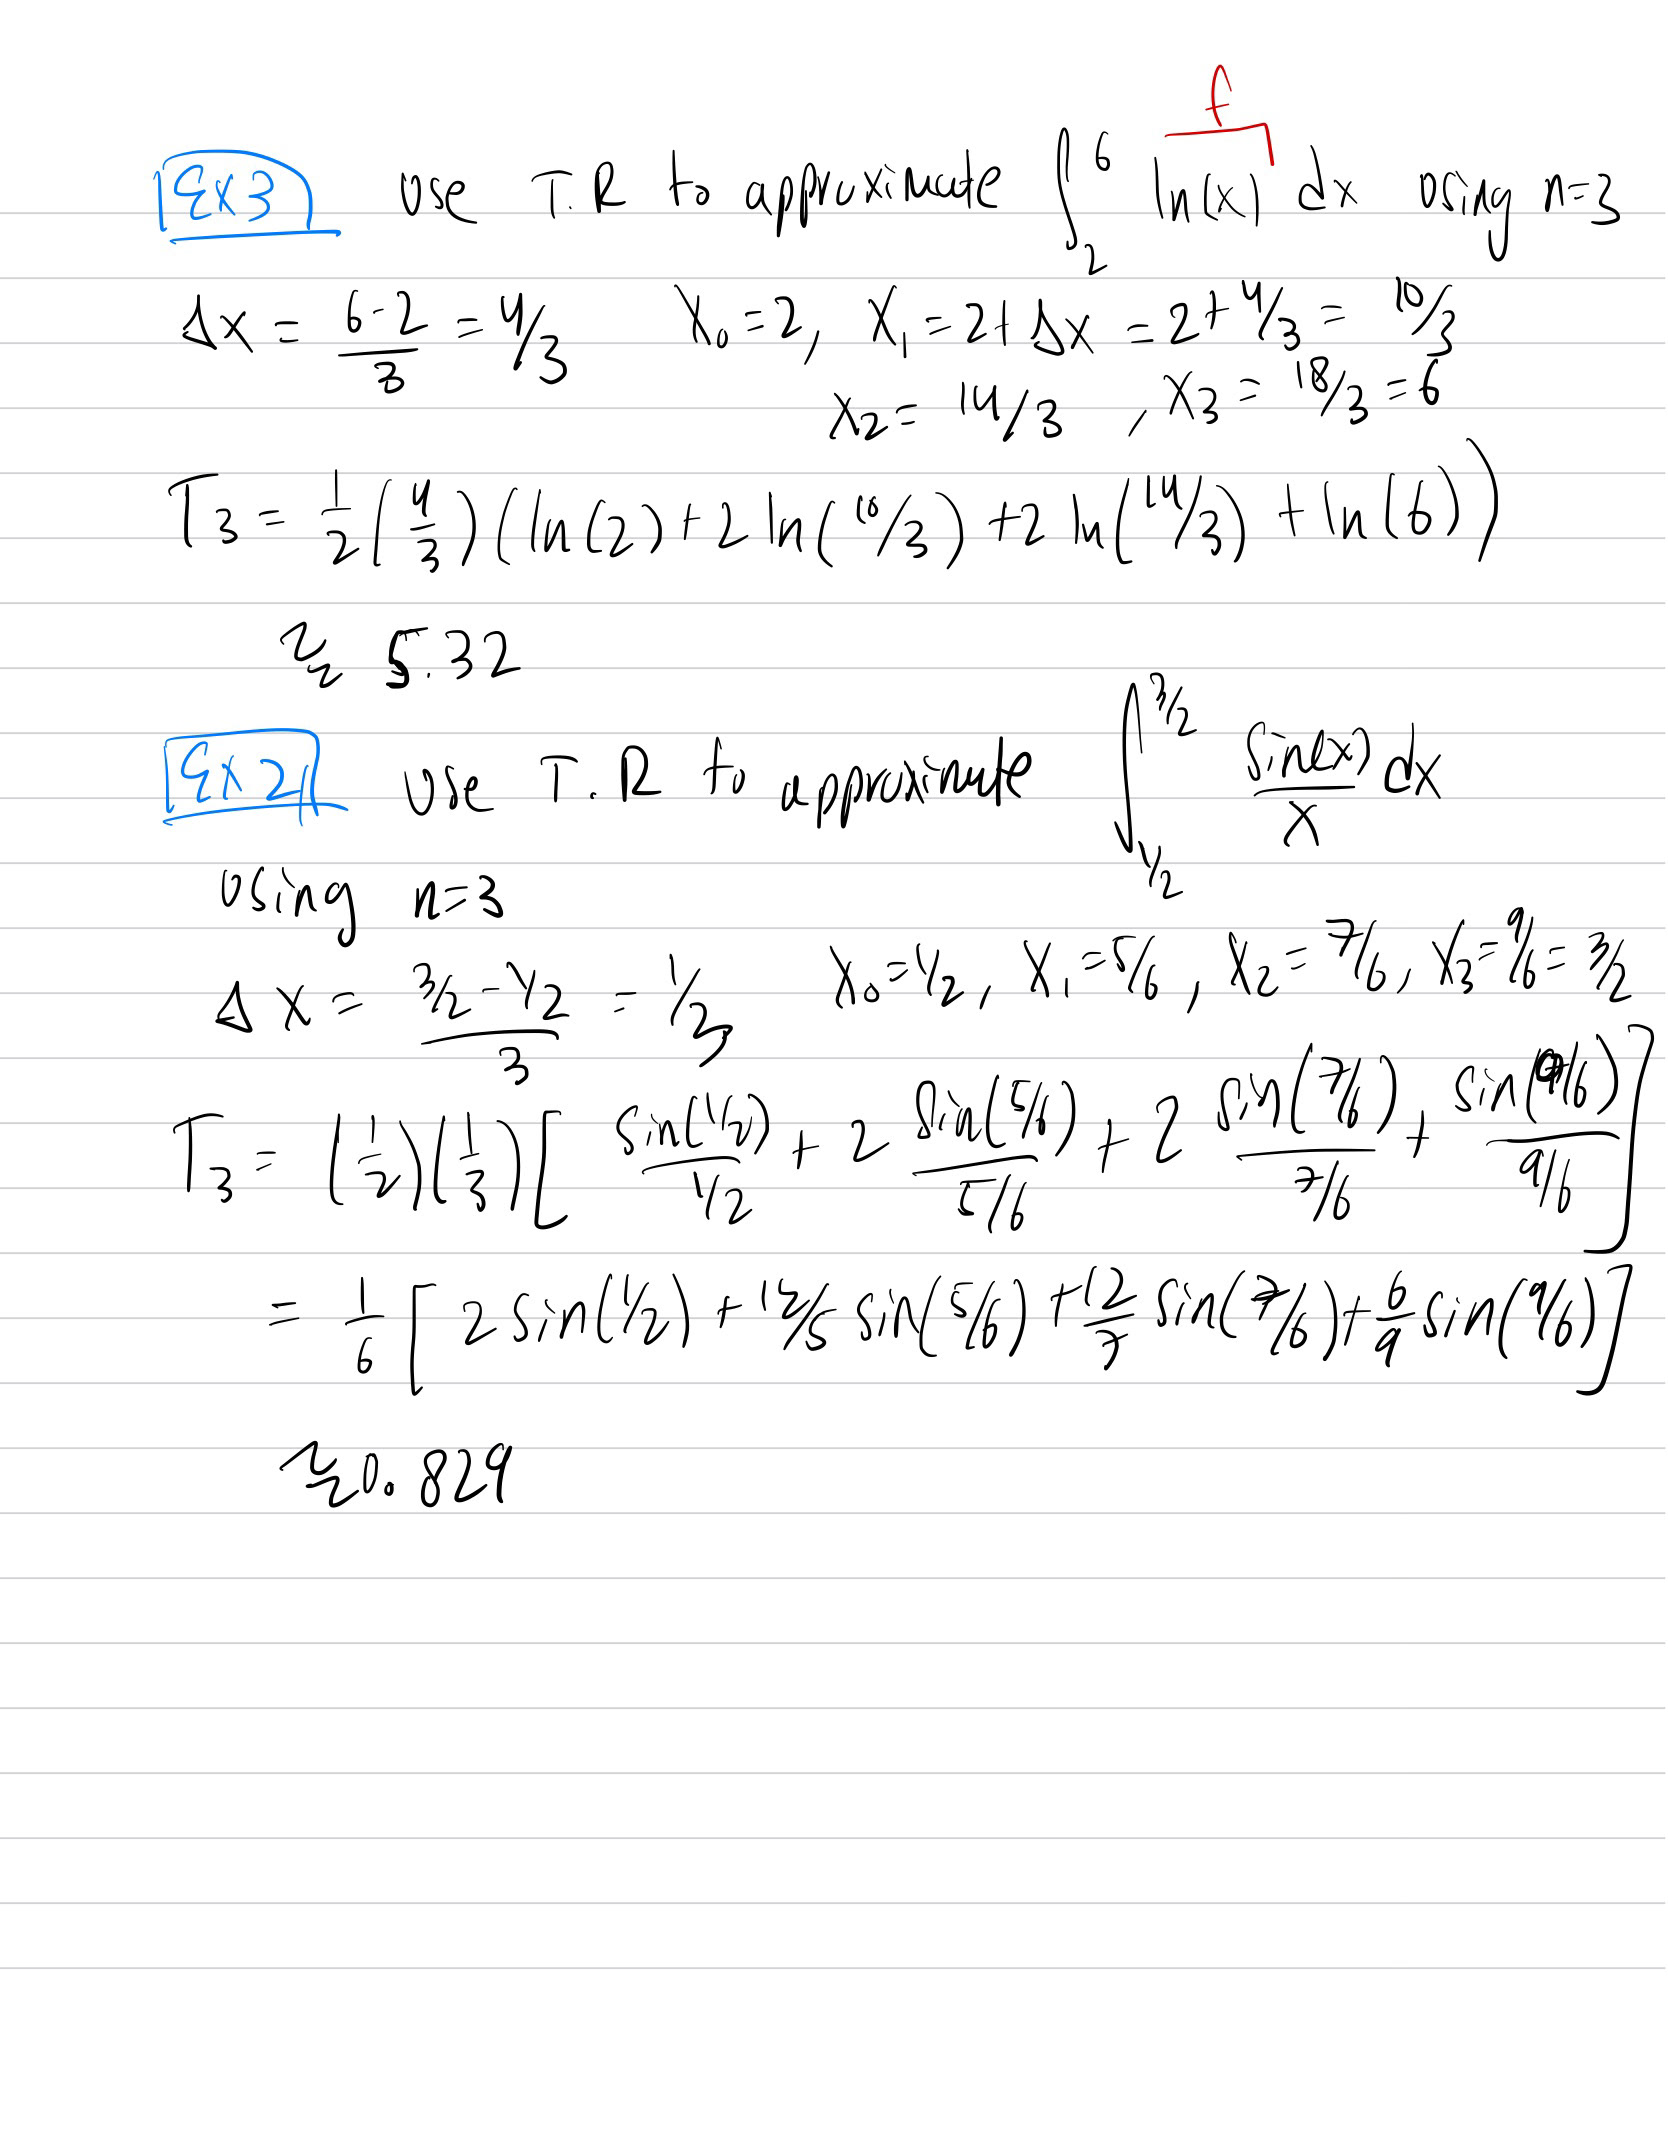 f
Ex3 Use T.R to approximate ∫_2^6 ln(x) dx using n=3
Δx = (6-2)/3 = 4/3 x₀=2, x₁=2+Δx = 2+4/3 = 10/3
x₂= 14/3 , x₃ = 18/3 = 6
T₃ = 1/2 (4/3) (ln(2)+2 ln(10/3) +2 ln(14/3) + ln(6))
≈ 5.32
Ex 2 Use T.R to approximate ∫_{1/2}^{3/2} sin(x)/x dx
using n=3
Δx = (3/2 - 1/2)/3 = 1/3 x₀=1/2, x₁=5/6, x₂=7/6, x₃=9/6=3/2
T₃ = (1/2)(1/3)[ sin(1/2)/(1/2) + 2 sin(5/6)/(5/6) + 2 sin(7/6)/(7/6) + sin(9/6)/(9/6) ]
= 1/6 [ 2 sin(1/2) + 12/5 sin(5/6) + 12/7 sin(7/6) + 6/9 sin(9/6) ]
≈ 0.829